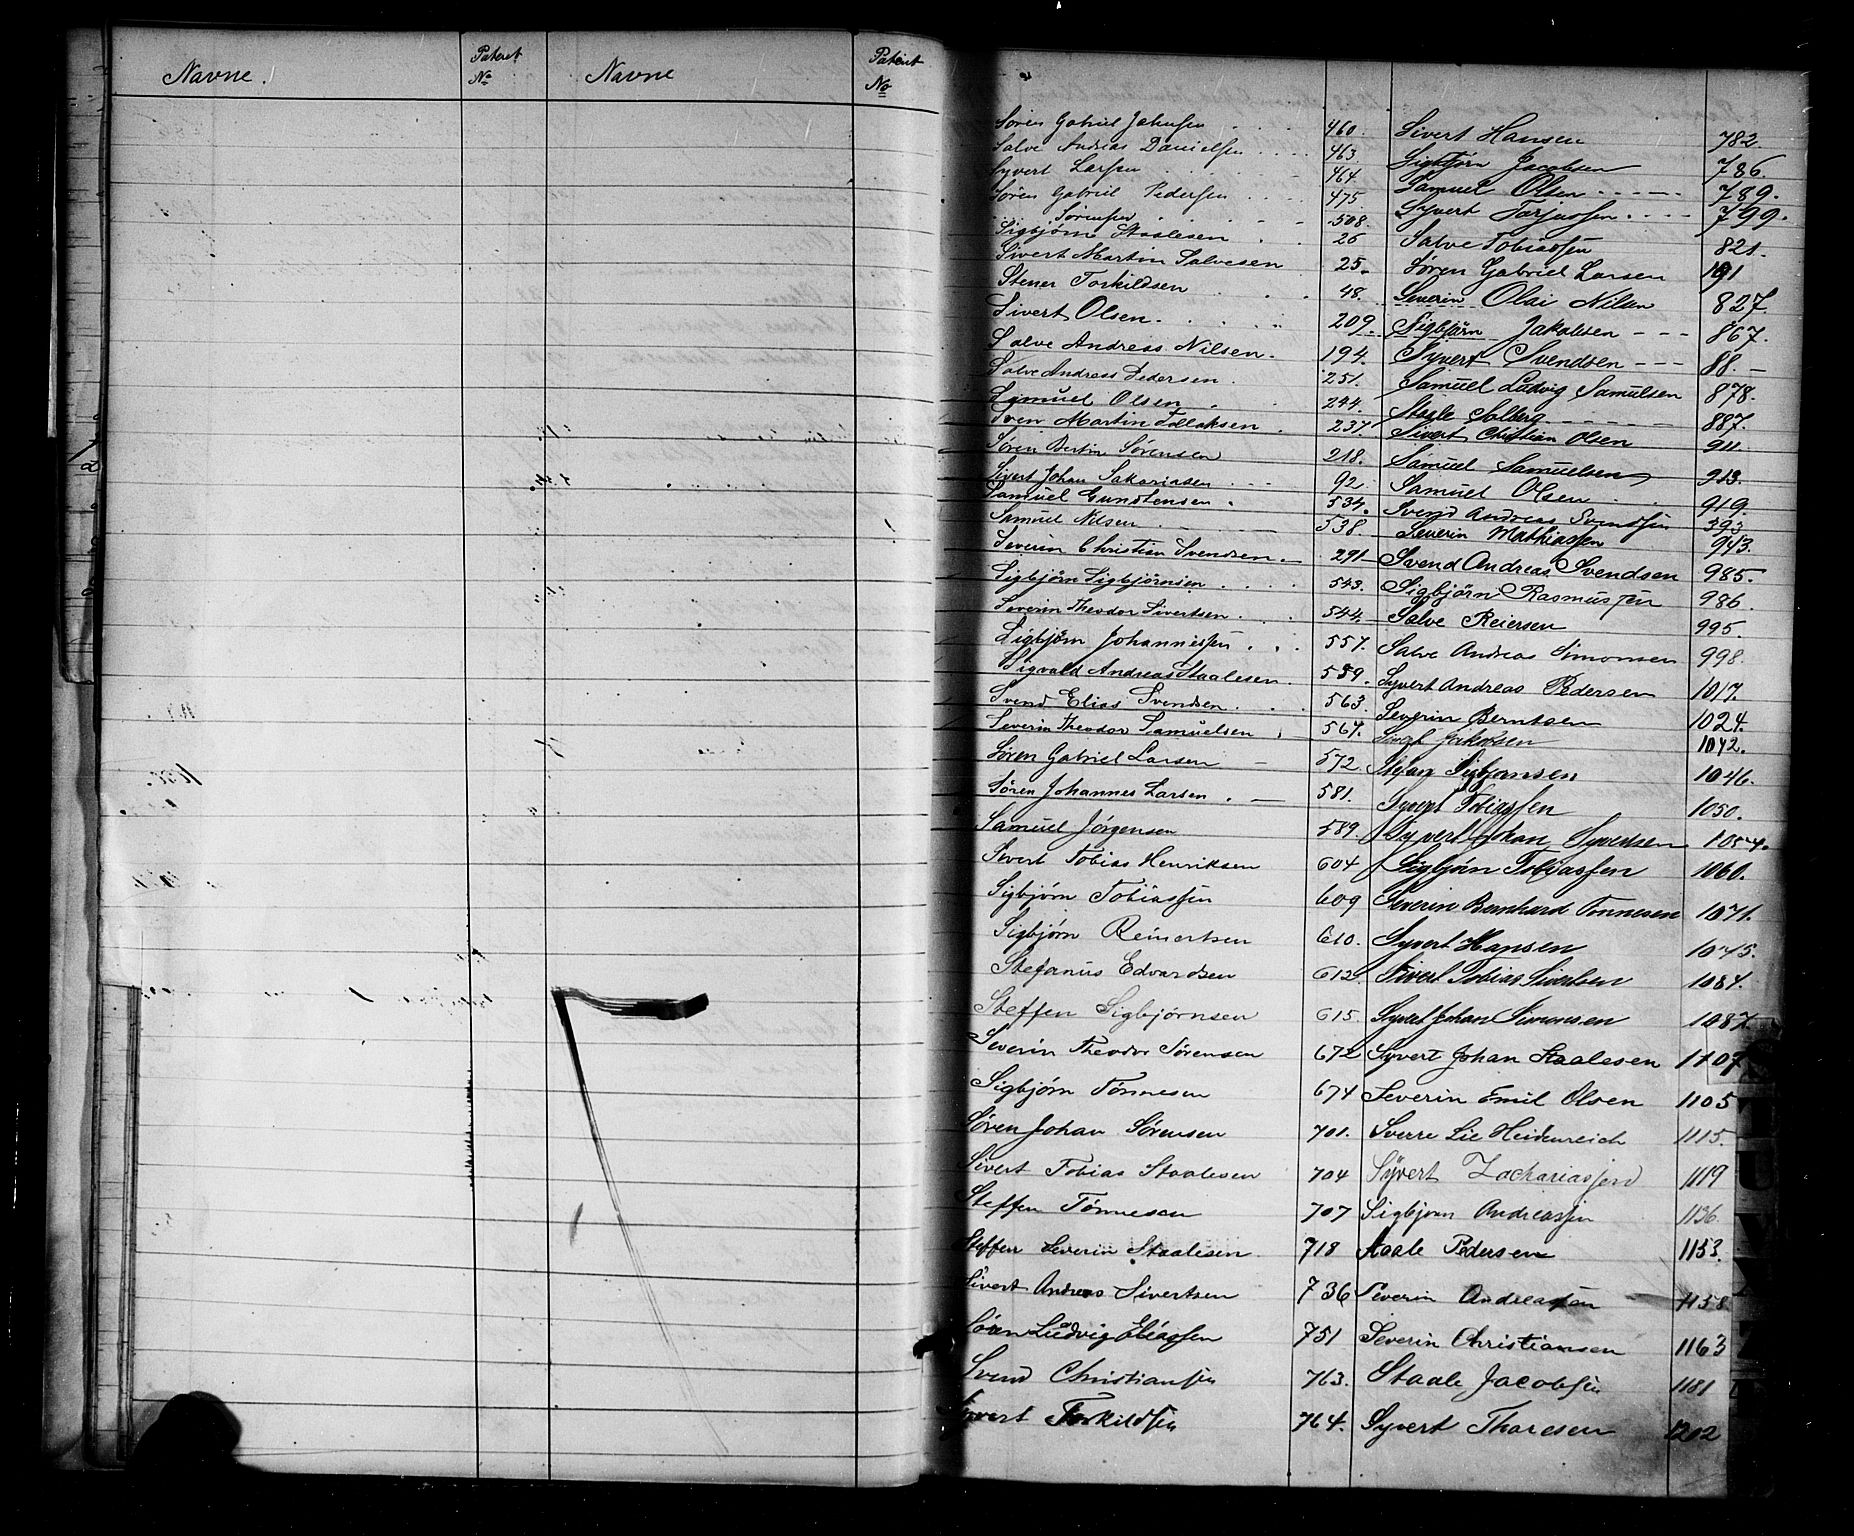 Navne.
Patent
No
Navne
Patent
No
Søren Gabriel Jakobsen . . . 460.
Salve Andreas Danielsen . . . 463.
Syvert Larsen . . . 464.
Søren Gabriel Pedersen . . . 475.
Sørensen . . . 508.
Sigbjørn Staalesen . . 26
Sivert Martin Salvesen 25.
Stener Torkildsen . . . 48.
Sivert Olsen . . . . 209.
Salve Andreas Nilsen. 194.
Salve Andreas Pedersen . 251.
Samuel Olsen . . 244.
Sven Martin Fallaksen . 237.
Søren Bertin Sørensen 218.
Sivert Johan Sakariasen - - - 92.
Samuel Gunstensen . 534.
Samuel Nilsen . - - - 538.
Severin Christian Svendsen. - 291
Sigbjørn Sigbjørnsen . . . . 543.
Severin Theodor Sivertsen. . . . 544.
Sigbjørn Johannessen . . . 557.
Sigvald Andreas Staalesen . 559.
Svend Elias Svendsen . . . 563.
Severin Theodor Samuelsen . 567.
Søren Gabriel Larsen - 572.
Søren Johannes Larsen . - 581.
Samuel Jørgensen 589.
Sivert Tobias Henriksen 604
Sigbjørn Tobiassen 609
Sigbjørn Reinertsen 610.
Stefanus Edvardsen 612.
Steffen Sigbjørnsen 615.
Severin Theodor Sørensen 672
Sigbjørn Tønnesen 674
Søren Johan Sørensen 701.
Sivert Tobias Staalesen 704
Steffen Tønnesen 707
Steffen Severin Staalesen 718
Sivert Andreas Sivertsen 736
Søren Ludvig Eliassen 751
Svend Christiansen 763.
Syvert Torkildsen 764.
Sivert Hansen 782.
Sigbjørn Jacobsen 786.
Samuel Olsen - - - - 789.
Syvert Torjussen . - - - 799.
Salve Tobiassen 821.
Søren Gabriel Larsen 191
Severin Olai Nilsen 827.
Sigbjørn Jakobsen - - - 867.
Syvert Svendsen - - - 88. -
Samuel Ludvig Samuelsen 878.
Staale Solberg - - - - - 887.
Sivert Christian Olsen 911.
Samuel Samuelsen 913.
Samuel Olsen . . . 919.
Svend Andreas Svendsen 593.
Severin Mathiassen 943.
Svend Andreas Svendsen 985.
Sigbjørn Rasmussen 986.
Salve Reiersen 995.
Salve Andreas Simonsen 998.
Syvert Andreas Pedersen 1017.
Severin Berntsen 1024.
Jakobsen 1042.
Stefan Sigbjønsen 1046.
Syvert Tobiassen 1050.
Syvert Johan Syvertsen 1054.
Sigbjørn Tobiassen 1060.
Severin Bernhard Tønnesen 1071.
Syvert Hansen 1045.
Sivert Tobias Sivertsen 1084.
Syvert Johan Simonsen 1087.
Syvert Johan Staalesen 1107
Severin Emil Olsen 1105
Sverre Lie Heidenreich 1115.
Syvert Zachariassen 1119
Sigbjørn Andreassen 1136.
Staale Pedersen 1153.
Severin Andreassen 1158
Severin Christiansen 1163
Staale Jacobsen 1181
Syvert Tharesen 1202
S
T
U
V